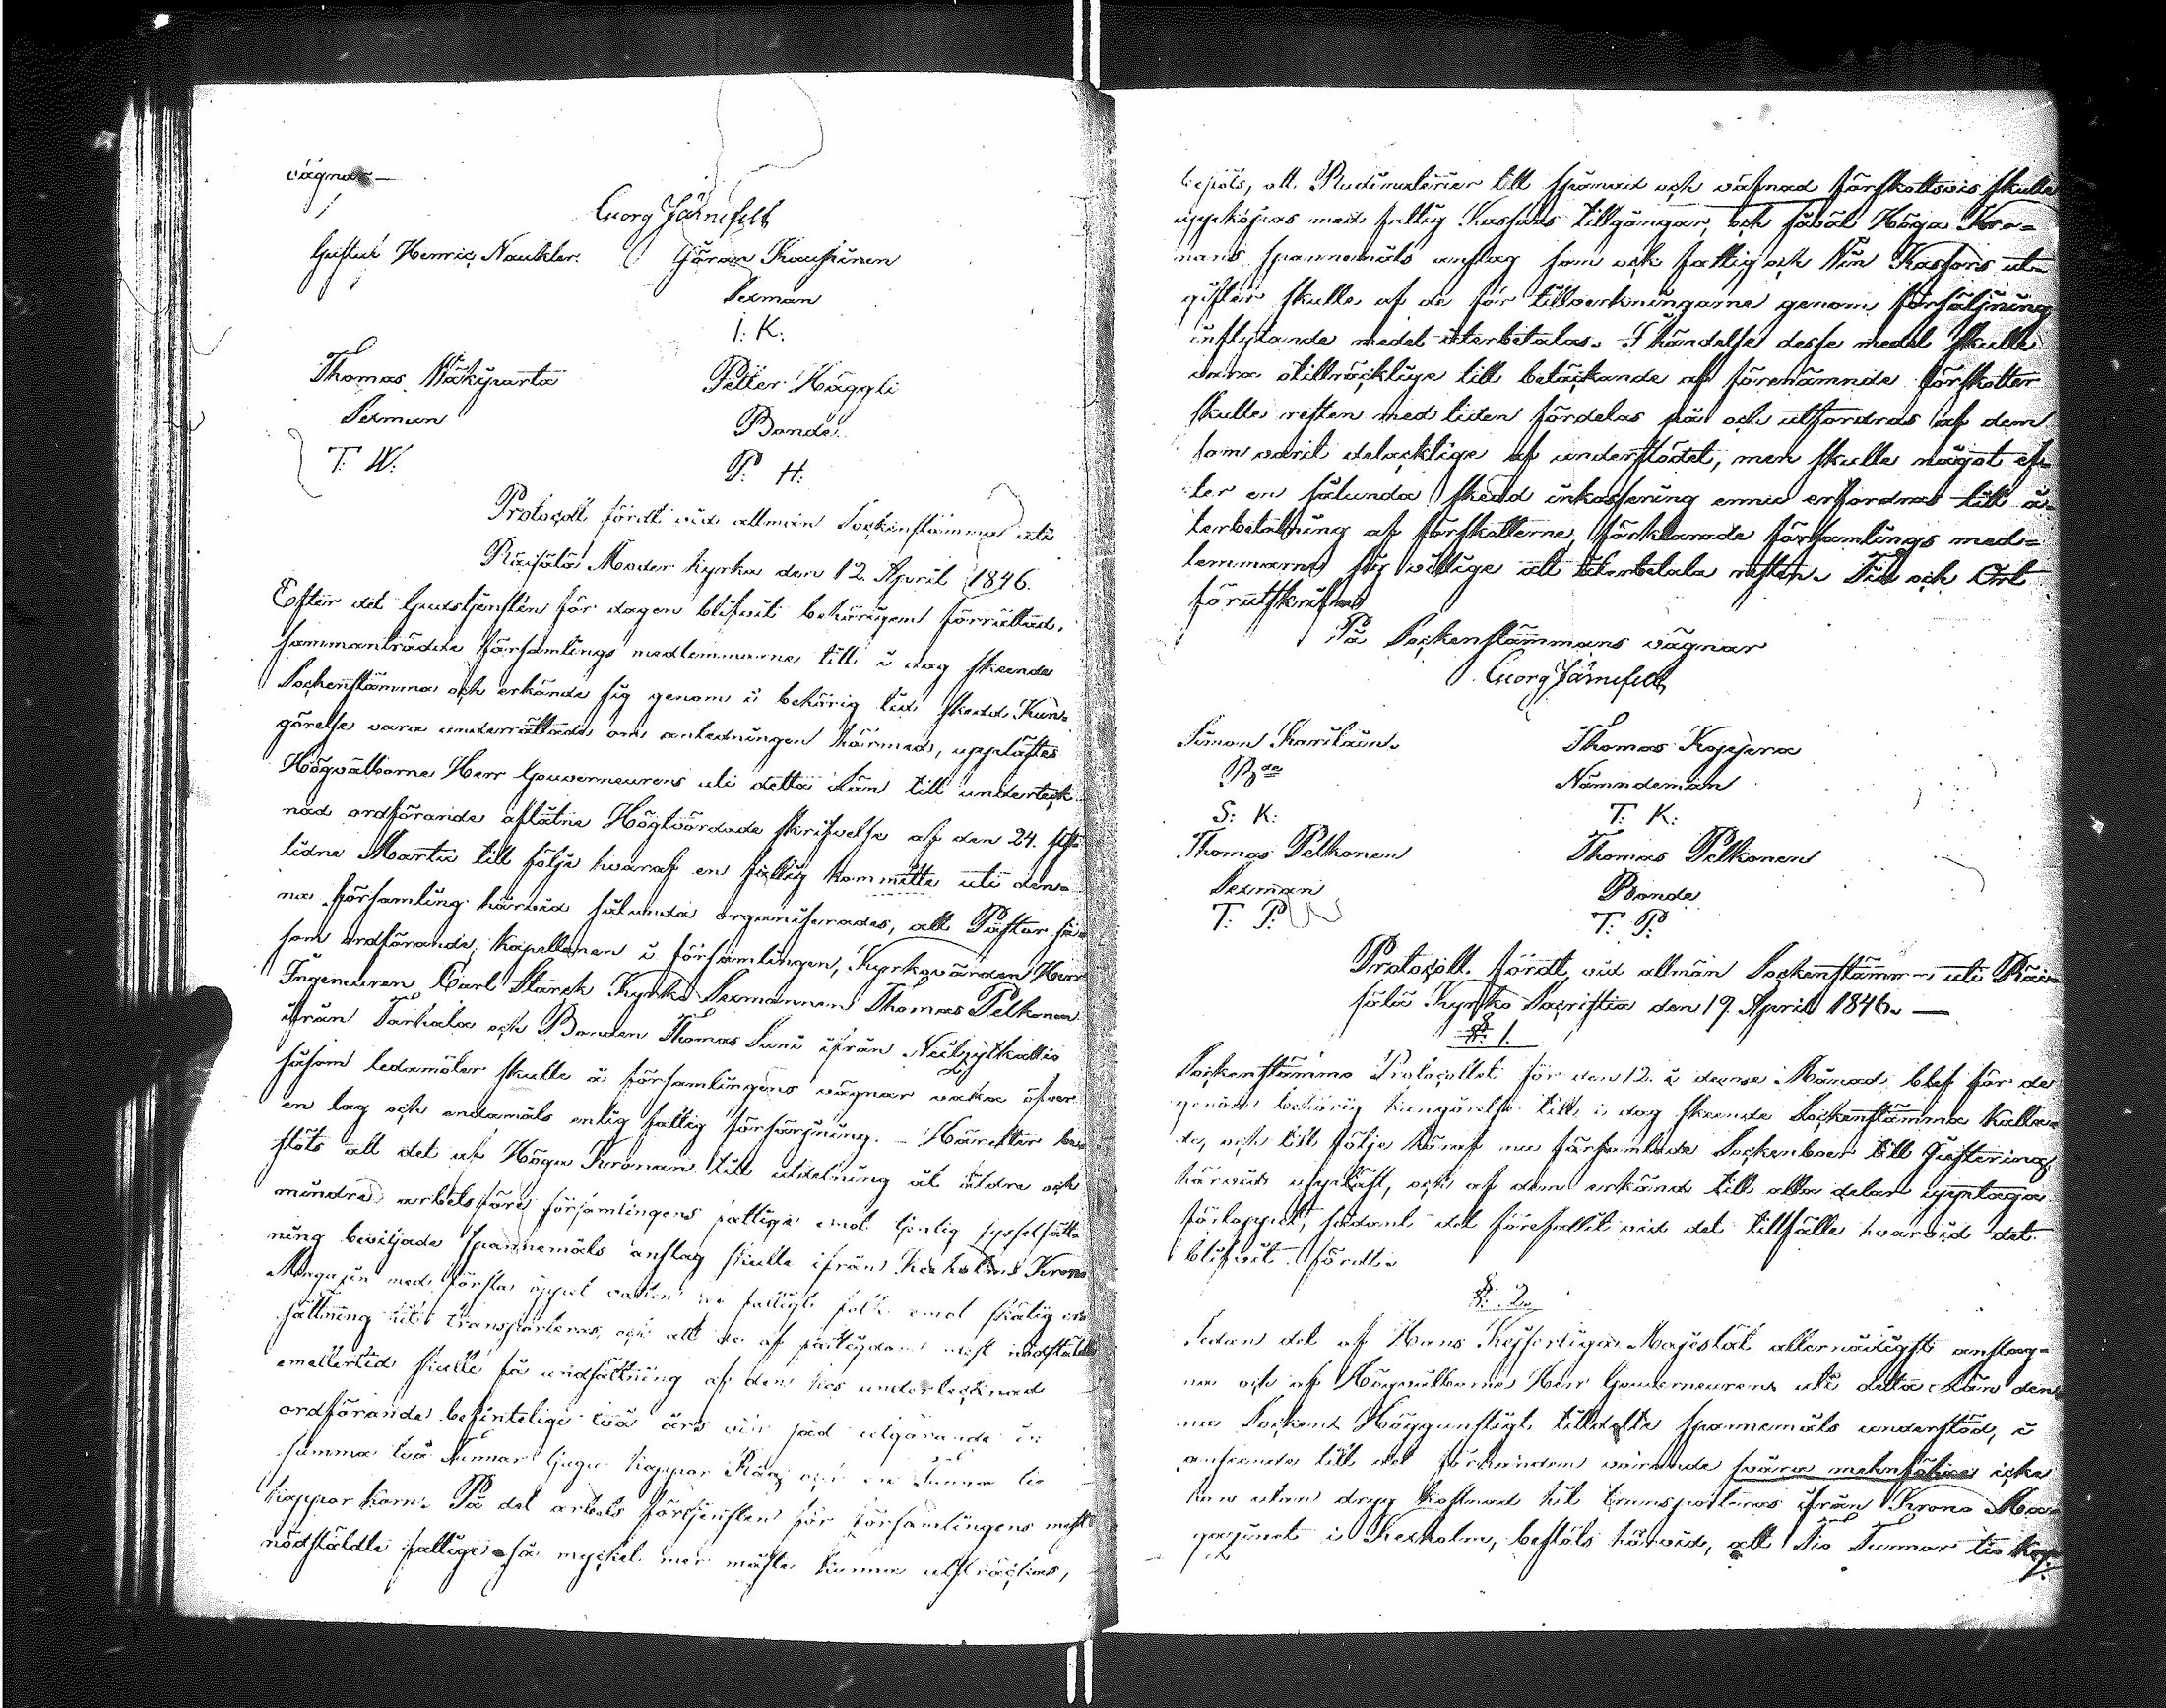 vägnar
Georg Järnefelt
Gustaf Henric Naukler. Göran Kauppinen
Sexman
I. K.
Thomas Wäkiparta Petter Häggli
Sexman Bonde
T. W. P. H.
Protocoll fördt vid allmän Sockenstämma uti
Räisälä Moder kyrka den 12. April 1846.
Efter det Gudstjensten för dagen blifvit behörigen förrättad,
sammanträdde församlings medlemmarne till i dag skeende
Sockenstämma och erkände sig genom i behörig tid skedd Kun-
görelse vara underrättade om anledningen härmed, upplästes
Högvälborne Herr Gouverneurens uti detta Län till underteck-
nad ordförande aflåtne Högtvördade skrifvelse af den 24. sist-
lidne Martii till följe hvaraf en fattig kommitté uti den-
na församling härvid sålunda organiserades, att Pastor så-
som ordförande, kapellanen i församlingen, Kyrkovärden Herr
Ingeneuren Carl Starck Kyrko Sexmannen Thomas Pelkonen
ifrån Tarkala och Bonden Thomas Suni ifrån
såsom ledamöter skulle å församlingens vägnar vaka öfver
en lag och endamåls enlig fattig försörjning. – Härefter be-
slöts att det af Höga Kronan till utdelning åt äldre och
mindre arbetsföre församlingens fattige emot lemlig sysselsätt-
ning beviljade Spannemåls anslag skulle ifrån Kexholms Krono
Magasin med första öppet vatten af fattigt folk emot skälig er-
sättning hit transporteras, och att de af fattigdom mest nödstälde
emellertid skulle få undsättning af den hos undertecknad
ordförande befintelige två års säd utgörande i
summa två Tunnor tjugu kappor Råg och en Tunna tio
kappor korn. På det arbets förtjensten för församlingens mest
nödstäldte fattige så mycket mer måtte kunna utsträckas,
beslöts, att Rudimaterier till spånad och väfnad förskottsvis skulle
uppköpas med fattig Kassans tillgångar, och såväl Höga Kro-
nans spannemåls anslag som ock fattig och Län Kassans ut-
gifter skulle af de för tillverkningarne genom försäljning
inflytande medel återbetalas. I händelse desse medel skulle
vara otillräcklige till betäckande af förenämnde förskotter
skulle resten med tiden fördelas på och utfordras af dem
som varit delacktige af understödet, men skulle något ef-
ter en sålunda skedd inkassering ännu erfordras till å-
terbetalning af förskotterne, förklarade församlings med-
lemmarne sig villige att återbetala resten. Tid och Ort
förutskrifne
På Sockenstämmans vägnar
Georg Järnefelt
Simon Karilain. Thomas Kojjena
Bde Nämndeman
S: K: T: K:
Thomas Pelkonen Thomas Pelkonen
Sexman Bonde
T: P: T: P:
Protocoll fördt vid allmän Sockenstämma uti Räi-
sälä Kyrko Sacristia den 19. April 1846. —
§. 1.
Sockenstämmo Protocollet för den 12. i denne Månad blef för de
genom behörig kungörelse till i dag skeende Sockenstämma kalla-
de, och till följe häraf nu församlade Sockenboer till Justering
härvid uppläst, och af dem erkänd till alla delar upptaga
förloppet, sådant det förefallit vid det tillfälle hvarvid det
blifvit fördt.
§. 2.
Sedan det af Hans Kejserliga Majestät allernådigst anslag-
ne och af Högvälborne Herr Gouverneuren uti detta Län den-
na Socken Höggunstigt tilldelte spannemåls understöd, i
anseende till det förhanden varande svåra menföret icke
kan utan dryg kostnad hit transporteras ifrån Krono Ma-
gasinet i Kexholm, beslöts härvid, att Tio Tunnor tio kap.